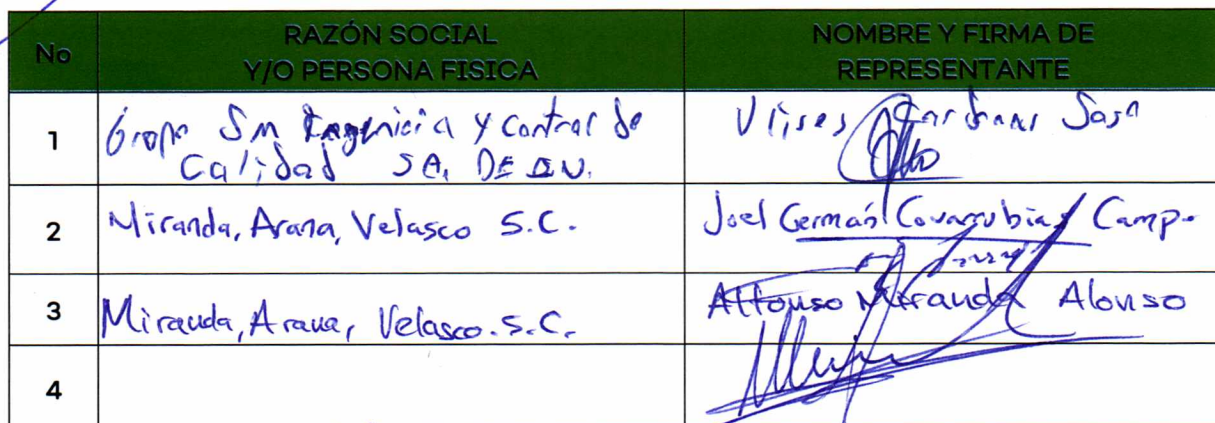 No
RAZÓN SOCIAL
Y/O PERSONA FISICA
NOMBRE Y FIRMA DE
REPRESENTANTE
1
Grupo SM Ingenieria y Control de
Calidad SA. DE
Ulises Sosa
2
Miranda, Arana, Velasco S.C.
Joel Germán Covarrubias Camp.
3
Miranda, Arana, Velasco. S.C.
Alfonso Miranda Alonso
4